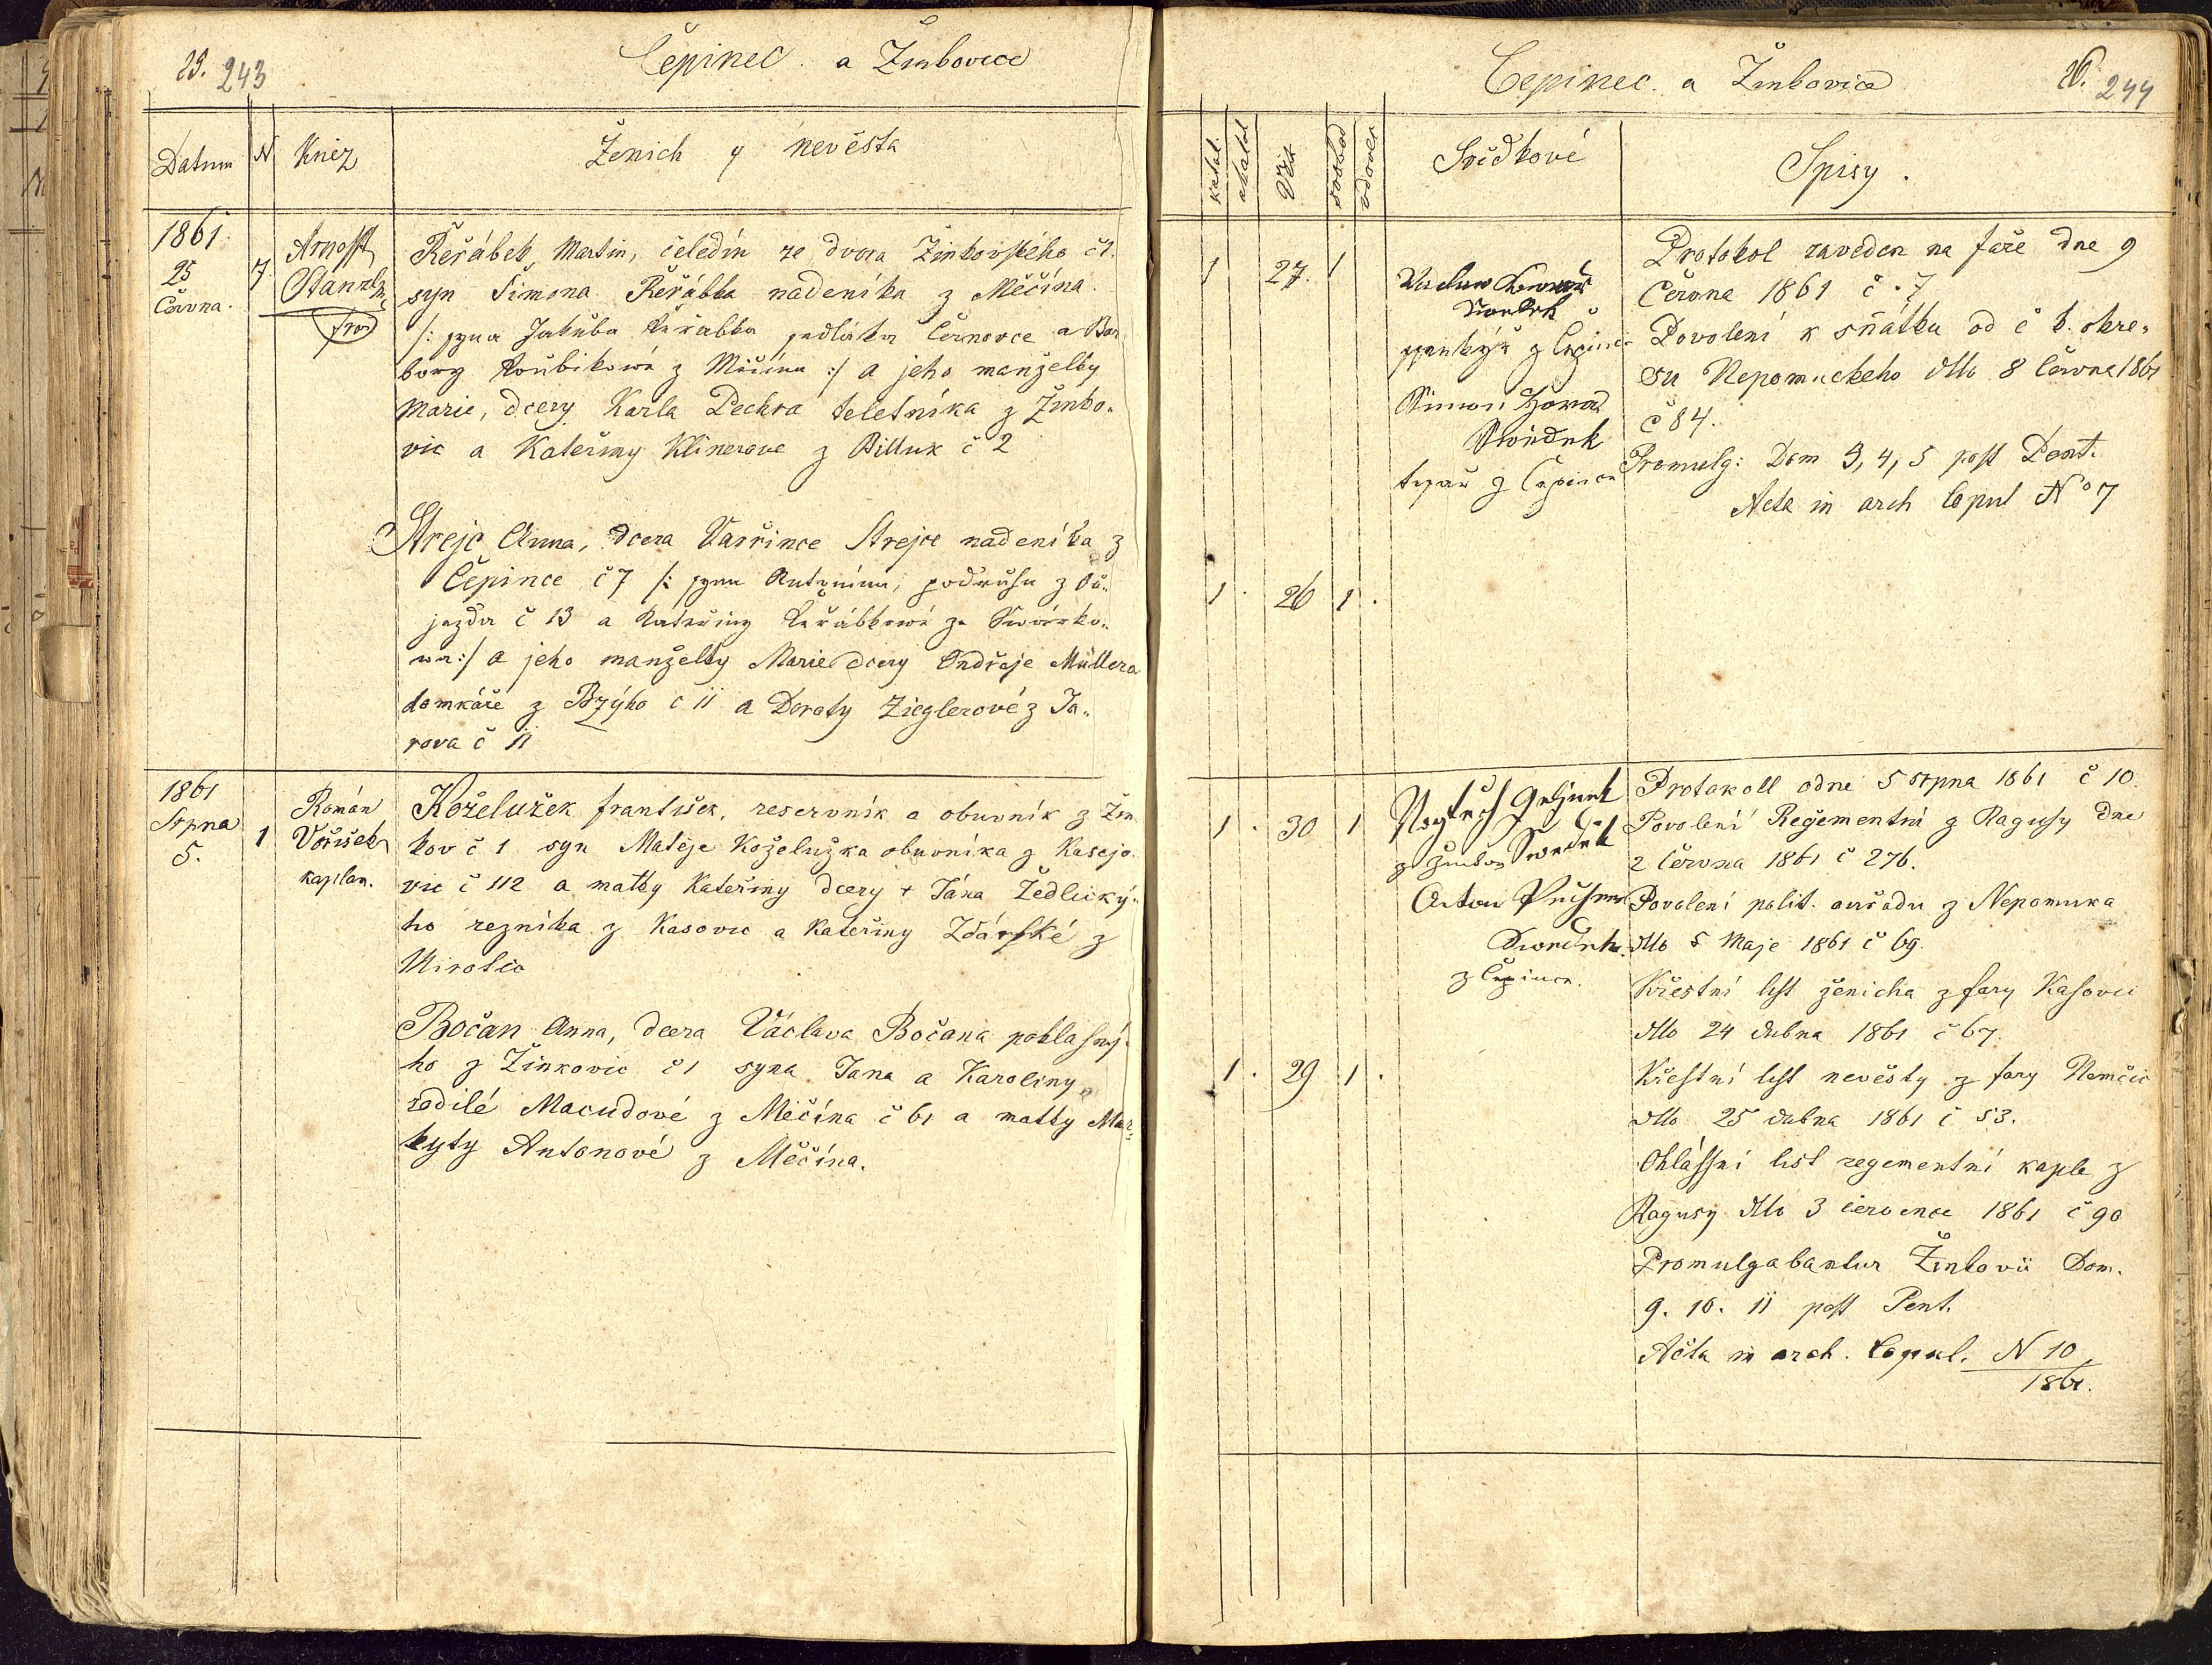 23. 243
Čepinec. a Žinkovice
Datum N Kněz Ženich y nevěsta
1861
25
Června.
7.
Arnošt
Řeřábek, Martin, čeledín ze dvora Žinkovského č1.
syn Šimona Řeřábka nádeníka z Měčína.
/: syna Jakuba Řeřábka sedláka
bory z Měčína :/ a jeho manželky
Marie, dcery Karla Pechra teletníka z Žinko„
vic a Kateřiny Klinerove z č 2
Strejc Anna, dcera Vavřince Strejce nádeníka z
Čepince č 7 /: syna Antonína, podruha z Ou„
jezda č 13 a Kateřiny Řeřábkowé ze
wa :/ a jeho manželky Marie dcery Ondřeje Müllera
domkáře z Bzýho č 11 a Doroty Zieglerové z Ja„
rova č 11
1861
Srpna
5.
1
Román
Voříšek
kaplan.
Koželužek František, reservník a obuvník z Žin
kov č 1 syn Matěje Koželužka obuvníka z Kasejo
vic č 112 a matky Kateřiny dcery + Jána Žedlický„
ho řezníka z Kasovic a Kateřiny Zdárské z
Mirotic
Bočan Anna, dcera Václava Bočana poklasný„
ho z Žinkovic č 1 syna Jana a Karoliny
rodilé Macudové z Měčína č 61 a matky Mar„
kyty Antonové z Měčína.
Čepinec. a Žinkovice
26. 244
katol. akatol. Věk svobod vdovec Svědkové Spisy.
1 27. 1
Svědek
z Čepince
Šimon
Svědek
z Čepince
Protokol zaveden na faře dne 9
Června 1861 č. 7
Povolení k sňátku od c k. okre„
su Nepomuckeho dtto 8 Června 1861
č 84.
Promulg: Dom 3, 4, 5 post Pent.
Acta in arch Copul No 7
1. 26 1.
1. 30 1
Svědek
z Žinkov
Anton
Svědek
z Čepince.
Protokoll odne 5 srpna 1861 č 10.
Povolení Regementní z Ragusy dne
2 Června 1861 č 276.
Povolení polit. ouřadu z Nepomuka
dtto 5 Maje 1861 č 69.
Křestní list ženicha z fary Kasovic
dtto 24 dubna 1861 č 67.
1. 29 1.
Křestní list nevěsty z fary Nemčic
dtto 25 dubna 1861 č 53.
Ohlášní list regementní kaple z
Ragusy dtto 3 července 1861 č 90
Promulgabantur Žinkovii Dom.
9. 10. 11 post Pent.
Acta in arch. Copul. N 10
1861.